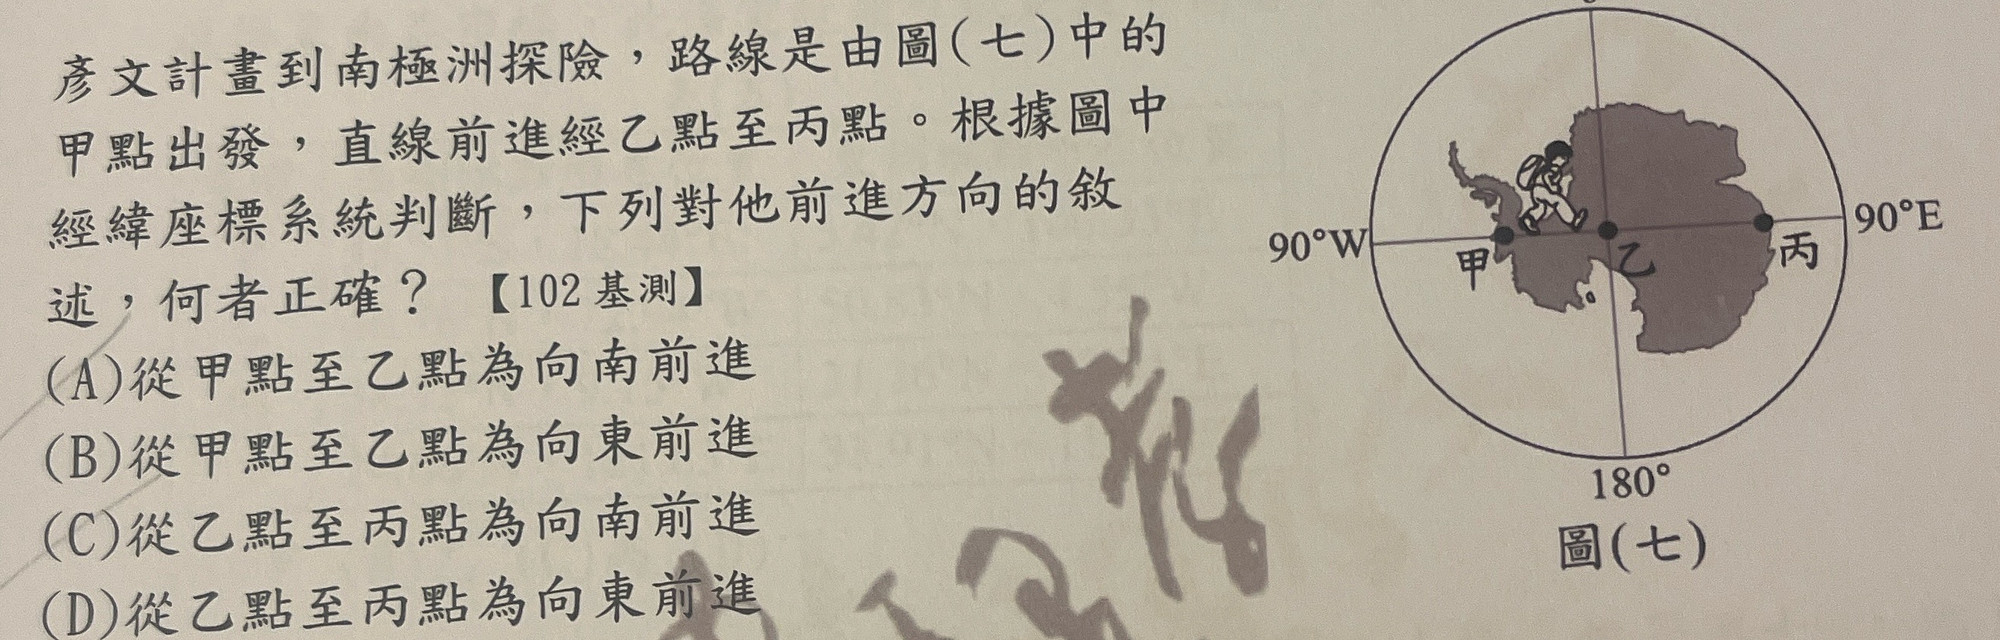 彥文計畫到南極洲探險，路線是由圖(七)中的
甲點出發，直線前進經乙點至丙點。根據圖中
經緯座標系統判斷，下列對他前進方向的敘
述，何者正確？【102基測】
(A)從甲點至乙點為向南前進
(B)從甲點至乙點為向東前進
(C)從乙點至丙點為向南前進
(D)從乙點至丙點為向東前進
90°W
甲
乙
丙
90°E
180°
圖(七)